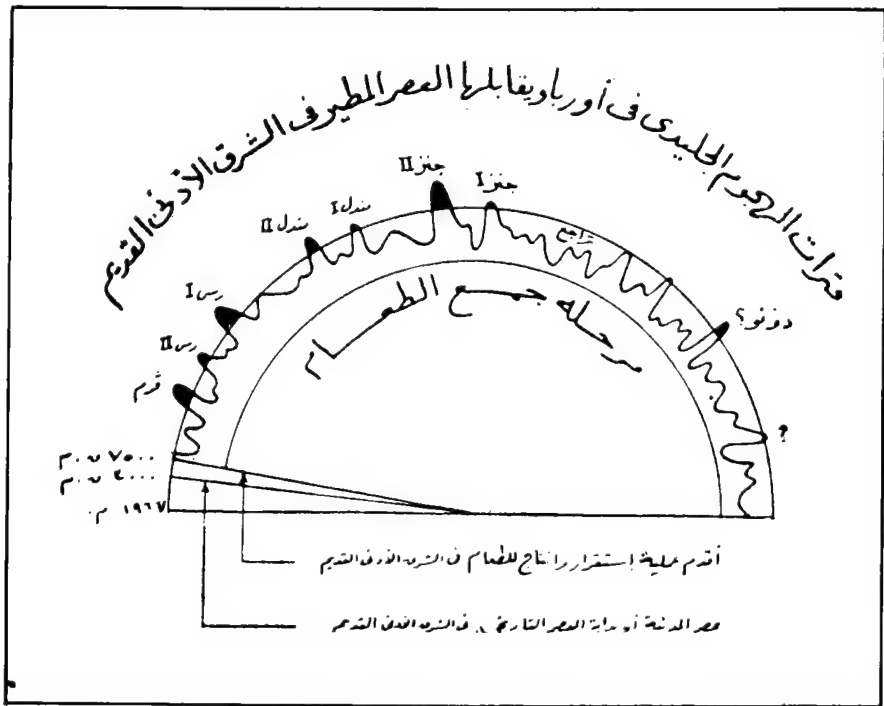 فترات الهجوم الجليدى فى أوربا ويقابلها العصر المطير فى الشرق الأدنى القديم
جنز I
جنز II
مندل I
مندل II
تراجع
رس I
رس II
ڤرم
دونو؟
؟
مرحله جمع الطعام
٧٥٠٠ ق.م
٤٠٠٠ ق.م
١٩٦٧ م.
أقدم عملية إستقرار وانتاج للطعام فى الشرق الأدنى القديم
عصر المدنية أو بداية العصر التاريخى فى الشرق الأدنى القديم